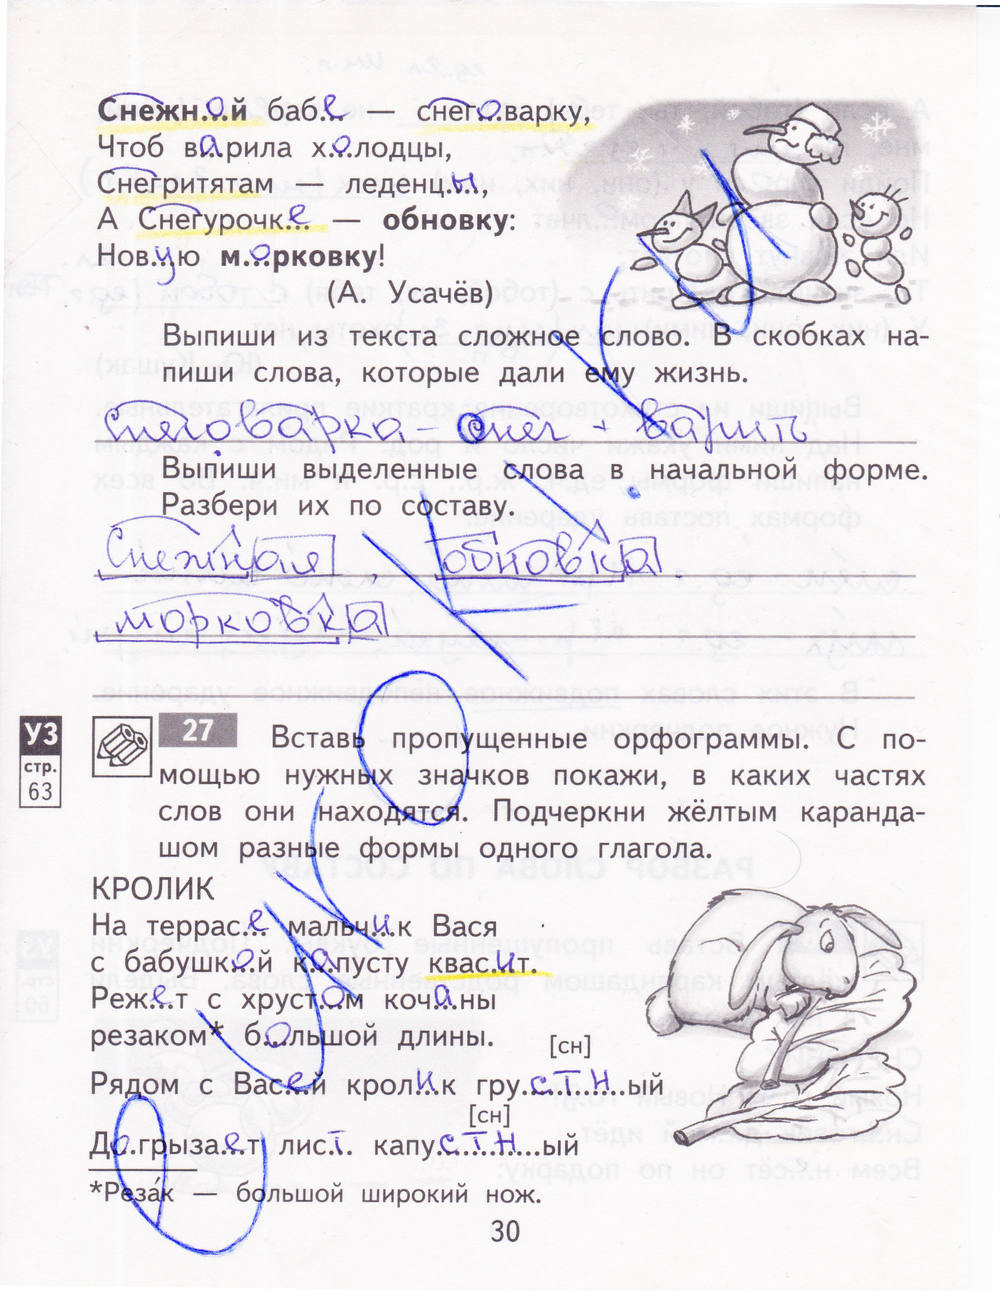 Снежн..о..й баб..е — снег..о..варку,
Чтоб в..а..рила х..о..лодцы,
Снегритятам — леденц..ы..,
А Снегурочк..е.. — обновку:
Нов..у..ю м..о..рковку!
(А. Усачёв)
Выпиши из текста сложное слово. В скобках на-
пиши слова, которые дали ему жизнь.
Снеговарка – снег + варить
Выпиши выделенные слова в начальной форме.
Разбери их по составу.
Снежная обновка
морковка
УЗ
стр.
63
27 Вставь пропущенные орфограммы. С по-
мощью нужных значков покажи, в каких частях
слов они находятся. Подчеркни жёлтым каранда-
шом разные формы одного глагола.
КРОЛИК
На террас..е.. мальч..и..к Вася
с бабушк..о..й к..а..пусту квас..и..т.
Реж..е..т с хруст..о..м коч..а..ны
резаком* б..о..льшой длины.
[сн]
Рядом с Вас..е..й крол..и..к гру..стн..ый
[сн]
До..грыза..е..т лис..т.. капу..стн..ый
*Резак — большой широкий нож.
30